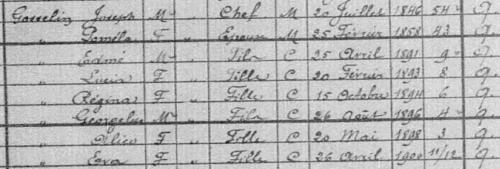 Gosselin Joseph M " Chef M 20 Juillet 1846 54 " Q.
" Pomélla F " Epouse M 25 Février 1858 43 " Q.
" Edmé M " Fils C 25 Avril 1891 9 " Q.
" Lucia F " Fille C 20 Février 1893 8 Q.
" Régina F " Fille C 15 Octobre 1894 6 Q.
" Georgelin M " Fils C 26 Août 1896 4 Q.
" Alice F " Fille C 20 Mai 1898 3 Q.
" Eva F " Fille C 26 Avril 1900 11/12 Q.